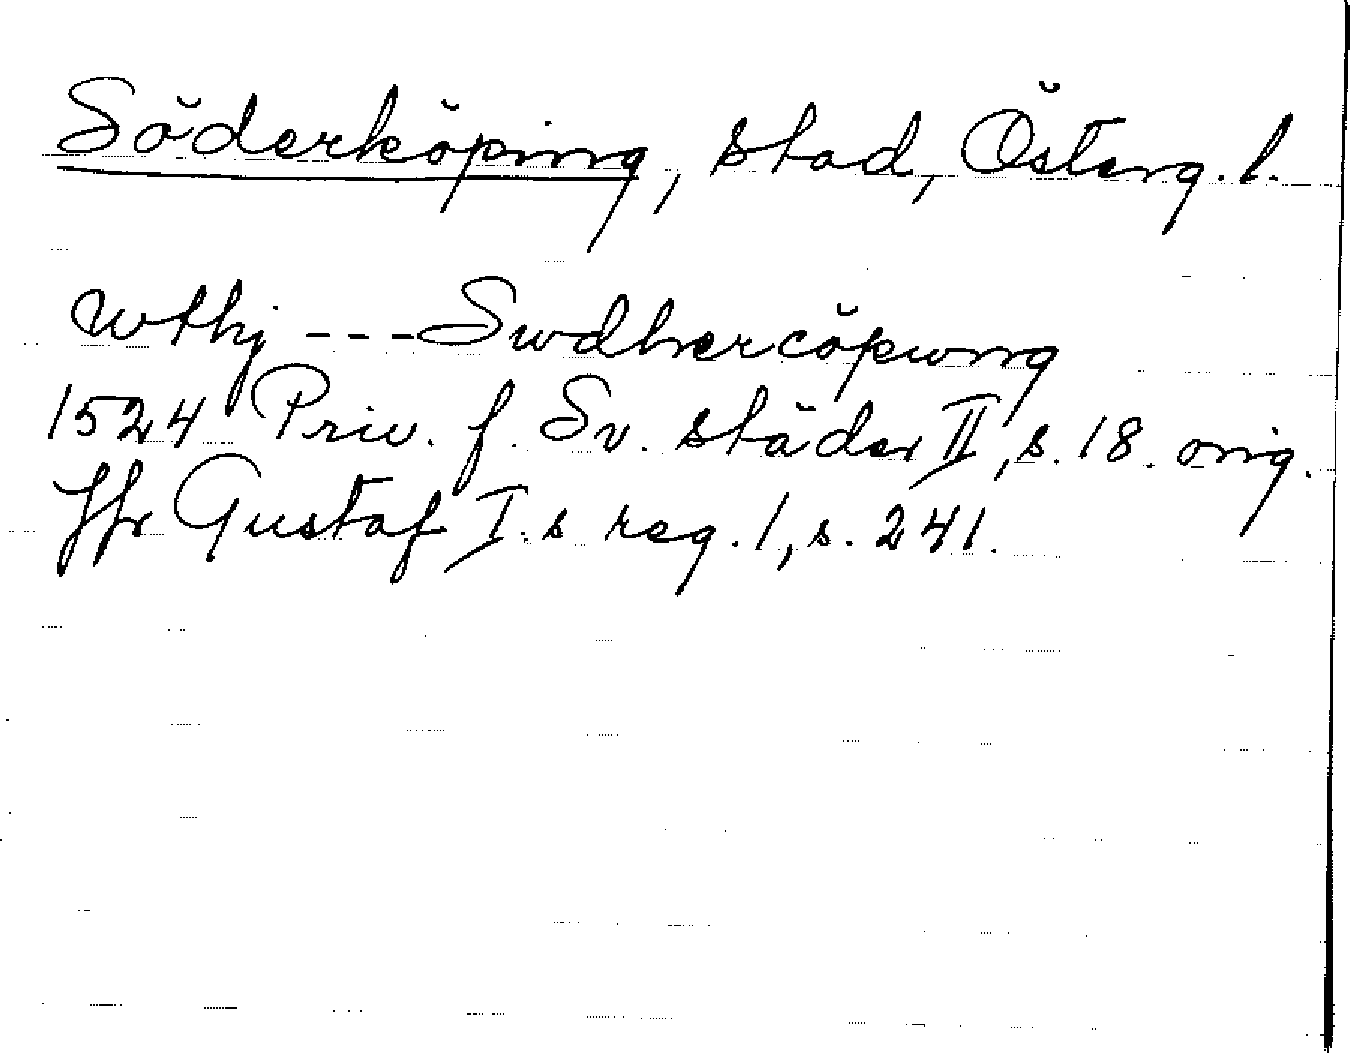 Söderköping, stad, Österg. l.
wthj --- Swdhercöpwng
1524 Priv. f. Sv. städer II, s. 18. orig.
Jfr Gustaf I.s reg. 1, s. 241.